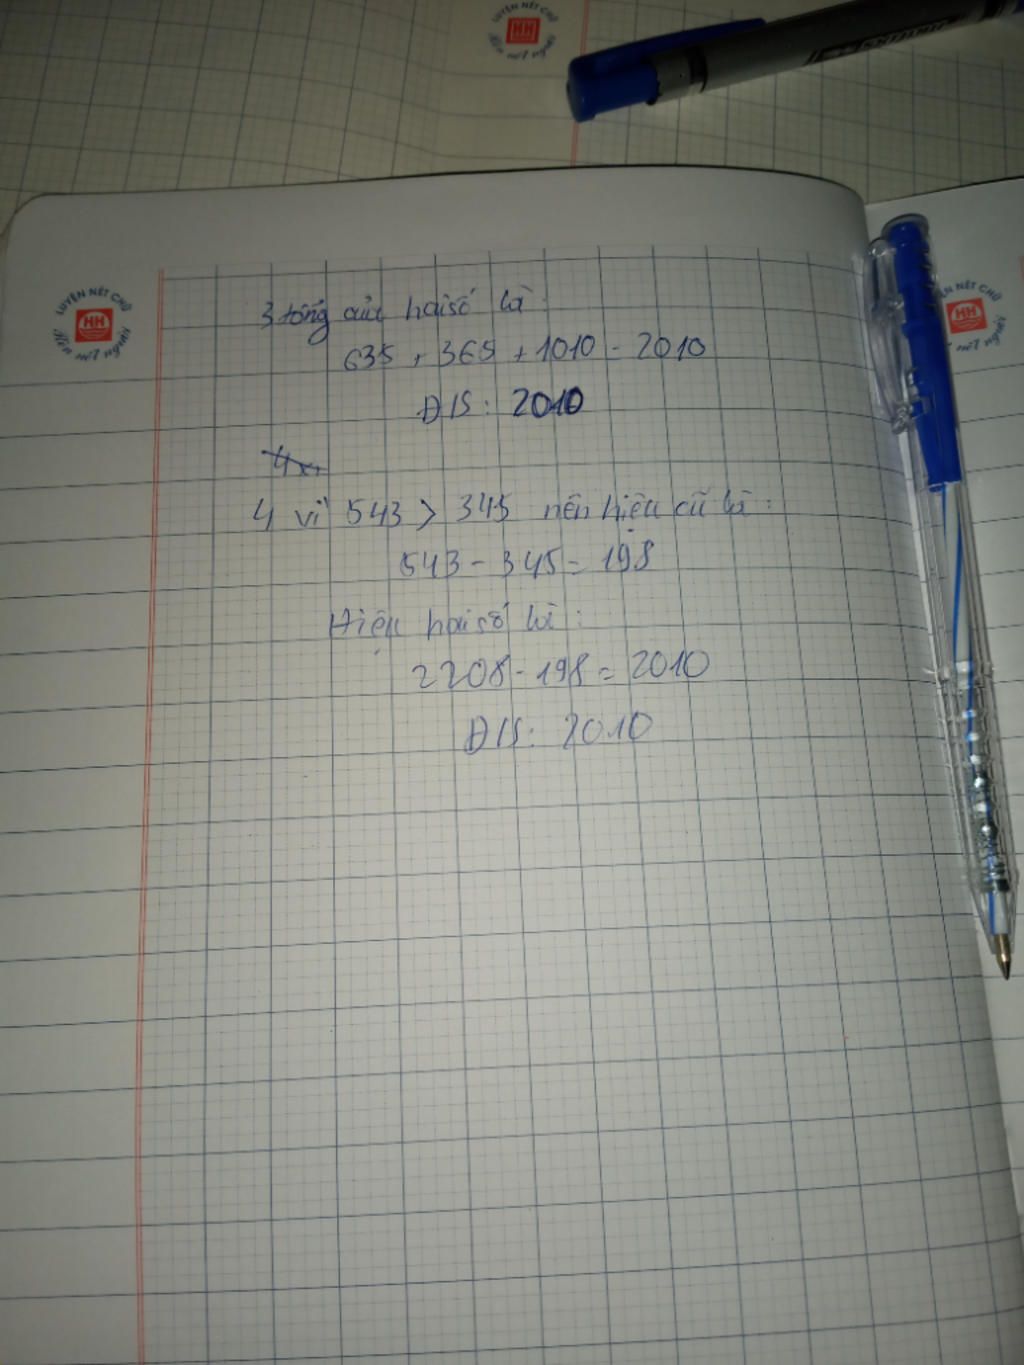 LUYỆN NÉT CHỮ
HH
Rèn nết người
LUYỆN NÉT CHỮ
HH
Rèn nết người
3 tổng của hai số là:
635 + 365 + 1010 = 2010
Đ/S: 2010
4
4 vì 543 > 345 nên hiệu cũ là:
543 - 345 = 198
Hiệu hai số là:
2208 - 198 = 2010
Đ/S: 2010
N NÉT CHỮ
HH
nết người